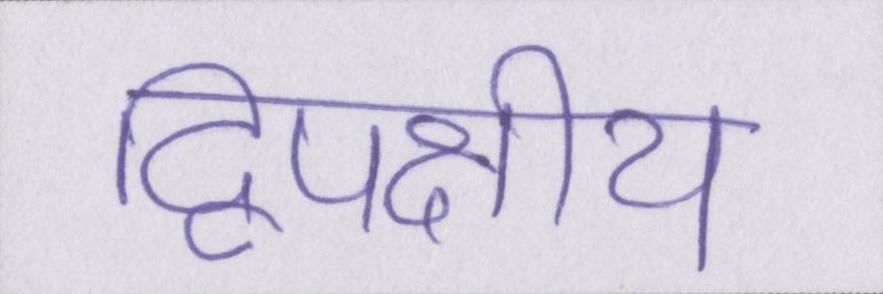 द्विपक्षीय